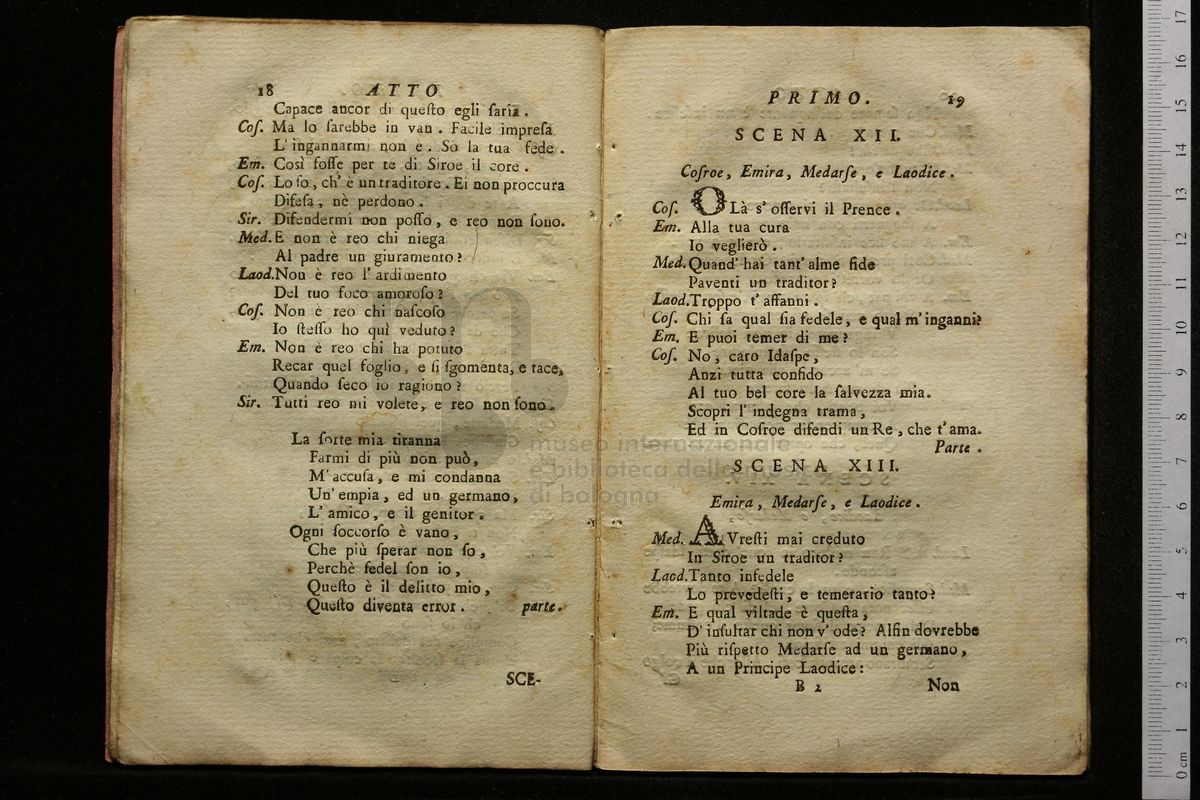 18 ATTO
Capace ancor di queſto egli ſaria.
Coſ. Ma lo ſarebbe in van. Facile impreſa
L'ingannarmi non e. So la tua fede.
Em. Così foſſe per te di Siroe il core.
Coſ. Lo ſo, ch'è un traditore. Ei non proccura
Difeſa, nè perdono.
Sir. Difendermi non poſſo, e reo non ſono.
Med. E non è reo chi niega
Al padre un giuramento?
Laod. Non è reo l'ardimento
Del tuo foco amoroſo?
Coſ. Non è reo chi naſcoſo
Io ſteſſo ho quì veduto?
Em. Non è reo chi ha potuto
Recar quel foglio, e ſi ſgomenta, e tace,
Quando ſeco io ragiono?
Sir. Tutti reo mi volete, e reo non ſono.
La ſorte mia tiranna
Farmi di più non può,
M'accuſa, e mi condanna
Un'empia, ed un germano,
L'amico, e il genitor.
Ogni ſoccorſo è vano,
Che più ſperar non ſo,
Perchè fedel ſon io,
Queſto è il delitto mio,
Queſto diventa error. parte.
SCE-
PRIMO. 19
SCENA XII.
Coſroe, Emira, Medarſe, e Laodice.
Coſ. OLà s'oſſervi il Prence.
Em. Alla tua cura
Io veglierò.
Med. Quand'hai tant'alme fide
Paventi un traditor?
Laod. Troppo t'affanni.
Coſ. Chi ſa qual ſia fedele, e qual m'inganni?
Em. E puoi temer di me?
Coſ. No, caro Idaſpe,
Anzi tutta confido
Al tuo bel core la ſalvezza mia.
Scopri l'indegna trama,
Ed in Coſroe difendi un Re, che t'ama.
Parte.
SCENA XIII.
Emira, Medarſe, e Laodice.
Med. AVreſti mai creduto
In Siroe un traditor?
Laod. Tanto infedele
Lo prevedeſti, e temerario tanto?
Em. E qual viltade è queſta,
D'inſultar chi non v'ode? Alfin dovrebbe
Più riſpetto Medarſe ad un germano,
A un Principe Laodice:
B 2 Non
museo internazionale
e biblioteca della musica
di bologna
0 cm 1 2 3 4 5 6 7 8 9 10 11 12 13 14 15 16 17